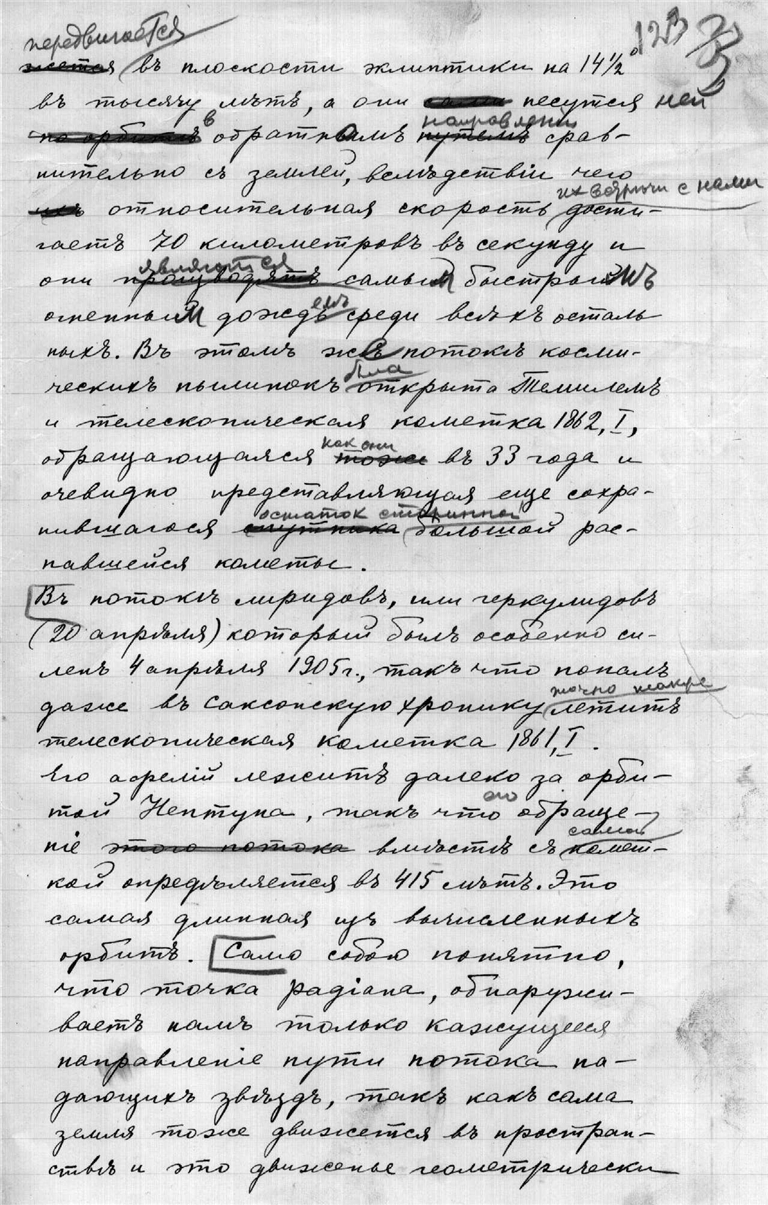 передвигается 123 33
жется въ плоскости эклиптики на 14½°
въ тысячу лѣтъ, а они сами несутся ней
по орбитѣ в обратномъ путемъ направленіи срав-
нительно съ землей, вслѣдствіи чего
ихъ относительная скорость их встрѣчи с нами дости-
гаетъ 70 километровъ въ секунду и
они производятъ являются самым быстрымъ
огненным дождемъ среди всѣхъ осталь-
ныхъ. Въ этомъ же потокѣ косми-
ческихъ пылинокъ была открыта Темпелемъ
и телескопическая кометка 1862, I,
обращающаяся тоже как они въ 33 года и
очевидно представляющая еще сохра-
нившагося спутника остаток старинной большой рас-
павшейся кометы.
Въ потокѣ лиридовъ, или геркулидовъ
(20 апрѣля) который былъ особенно си-
ленъ 4 апрѣля 1905г., такъ что попалъ
даже въ Саксонскую хронику точно также летитъ
телескопическая кометка 1861, I.
Его афелій лежитъ далеко за орби-
той Нептуна, такъ что его обраще-
ніе этого потока вмѣстѣ съ самой комет-
кой опредѣляется въ 415 лѣтъ. Это
самая длинная изъ вычисленныхъ
орбитъ. Само собою понятно,
что точка радіана, обнаружи-
ваетъ намъ только кажущееся
направленіе пути потока па-
дающихъ звѣздъ, такъ какъ сама
земля тоже движется въ простран-
ствѣ и это движенье геометрически